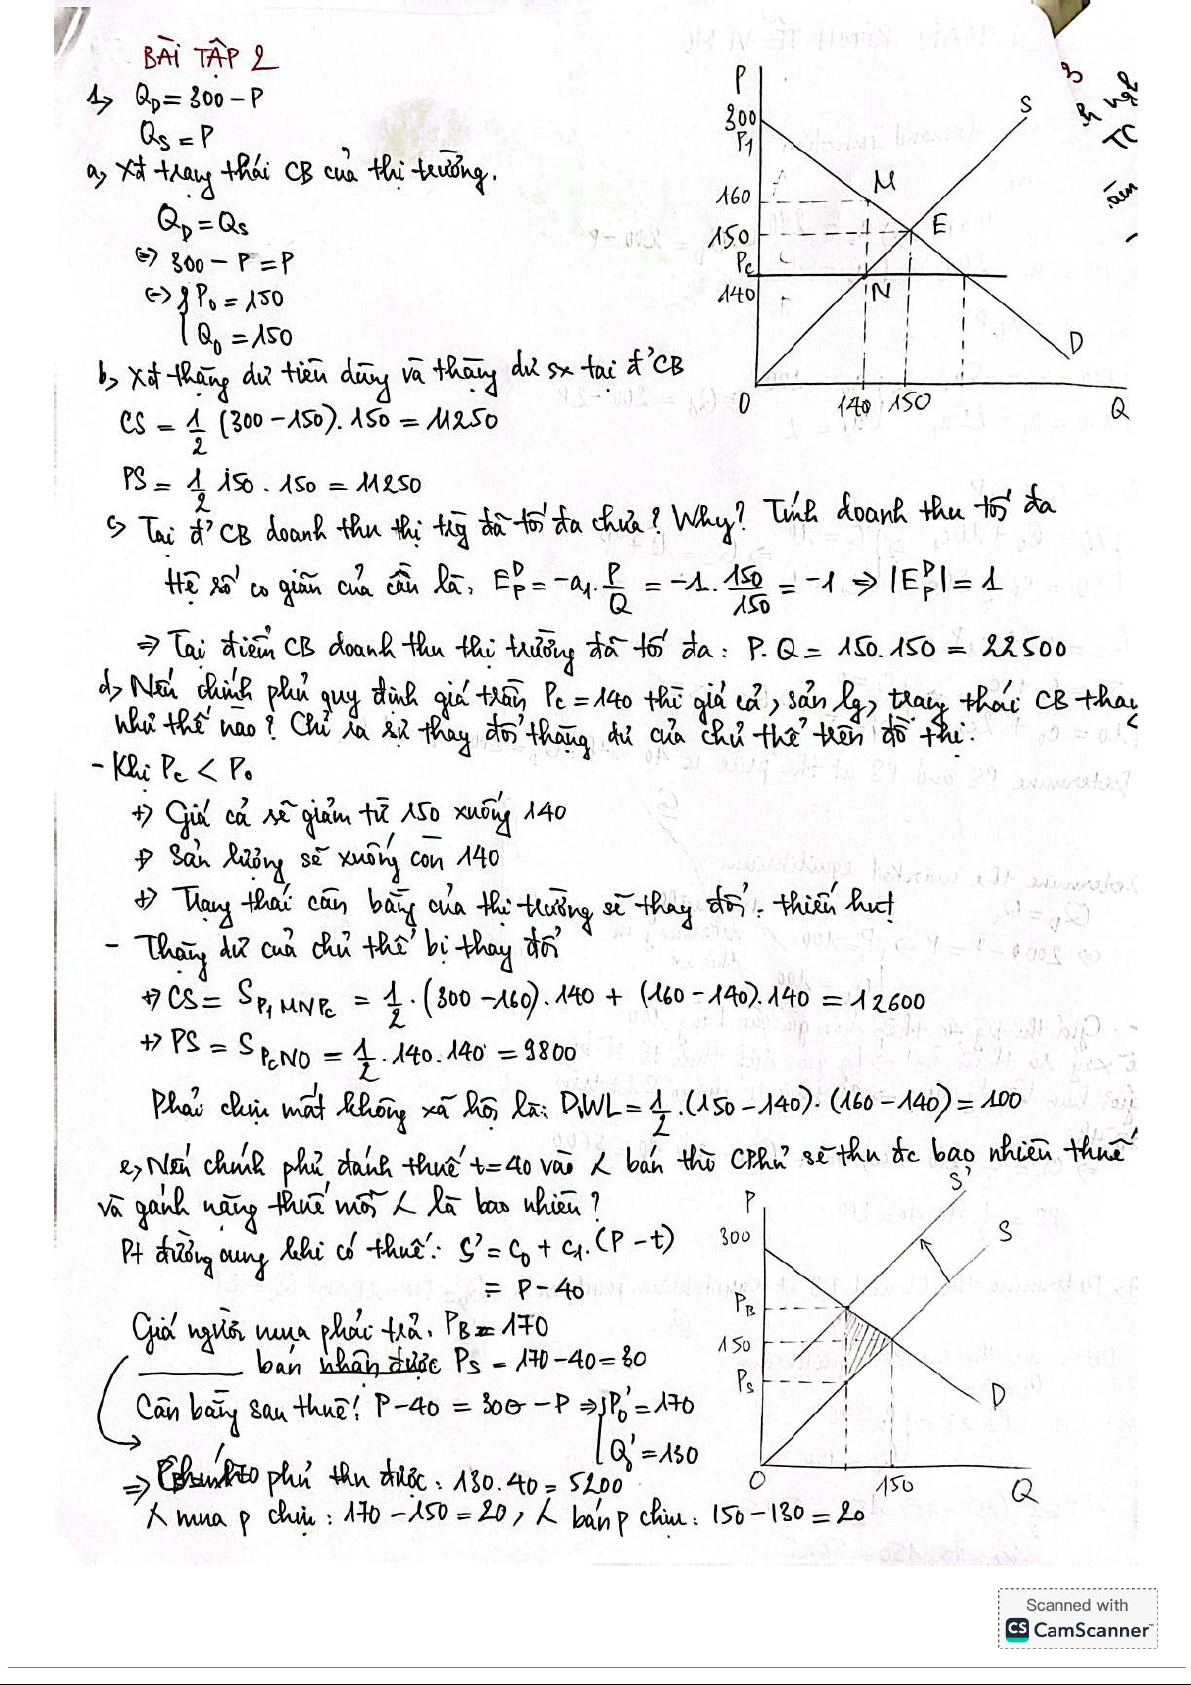 BÀI TẬP 2
1, Q_D = 300 - P
Q_S = P
a, Xđ trạng thái CB của thị trường.
Q_D = Q_S
<=> 300 - P = P
<=> { P_0 = 150
Q_0 = 150
b, Xđ thặng dư tiêu dùng và thặng dư sx tại đ' CB
CS = 1/2 (300 - 150). 150 = 11250
PS = 1/2 150 . 150 = 11250
c, Tại đ' CB doanh thu thị trg đã tối đa chưa? Why? Tính doanh thu tối đa
Hệ số co giãn của cầu là: E_P^D = -a_1. P/Q = -1. 150/150 = -1 => |E_P^D| = 1
=> Tại điểm CB doanh thu thị trường đã tối đa: P. Q = 150. 150 = 22500
d, Nếu chính phủ quy định giá trần P_c = 140 thì giá cả, sản lg, trạng thái CB thay
như thế nào? Chỉ ra sự thay đổi thặng dư của chủ thể trên đồ thị.
- Khi P_c < P_0
+) Giá cả sẽ giảm từ 150 xuống 140
+) Sản lượng sẽ xuống còn 140
+) Trạng thái cân bằng của thị trường sẽ thay đổi: thiếu hụt
- Thặng dư của chủ thể bị thay đổi
+) CS = S_P1MNPc = 1/2 . (300 - 160). 140 + (160 - 140). 140 = 12600
+) PS = S_PcNO = 1/2 . 140. 140 = 9800
Phải chịu mất không xã hội là: DWL = 1/2 .(150 - 140). (160 - 140) = 100
e, Nếu chính phủ đánh thuế t = 40 vào ng bán thì CPhủ sẽ thu đc bao nhiêu thuế
và gánh nặng thuế mỗi ng là bao nhiêu?
Pt đường cung khi có thuế: S' = c_0 + c_1. (P - t)
= P - 40
Giá người mua phải trả: P_B = 170
______ bán nhận được P_S = 170 - 40 = 30
Cân bằng sau thuế: P - 40 = 300 - P => { P_0' = 170
Q_0' = 130
=> Chính phủ thu được: 130. 40 = 5200
ng mua p chịu: 170 - 150 = 20, ng bán p chịu: 150 - 130 = 20
P
300
P_1
160
150
P_c
140
0
140
150
Q
S
M
E
N
D
P
300
P_B
150
P_S
0
150
Q
S'
S
D
Scanned with
CS CamScanner